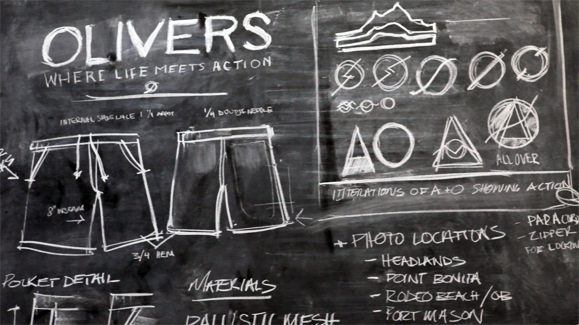 OLIVERS
WHERE LIFE MEETS ACTION
INTERNAL SHOELACE 1 1/4
1/4 DOUBLE NEEDLE
8" INSEAM
3/4 HEM
POCKET DETAIL
MATERIALS
BALLISTIC MESH
ALL OVER
ITERATIONS OF A+O SHOWING ACTION
+ PHOTO LOCATIONS
- HEADLANDS
- POINT BONITA
- RODEO BEACH/OB
- FORT MASON
- ZIPPER